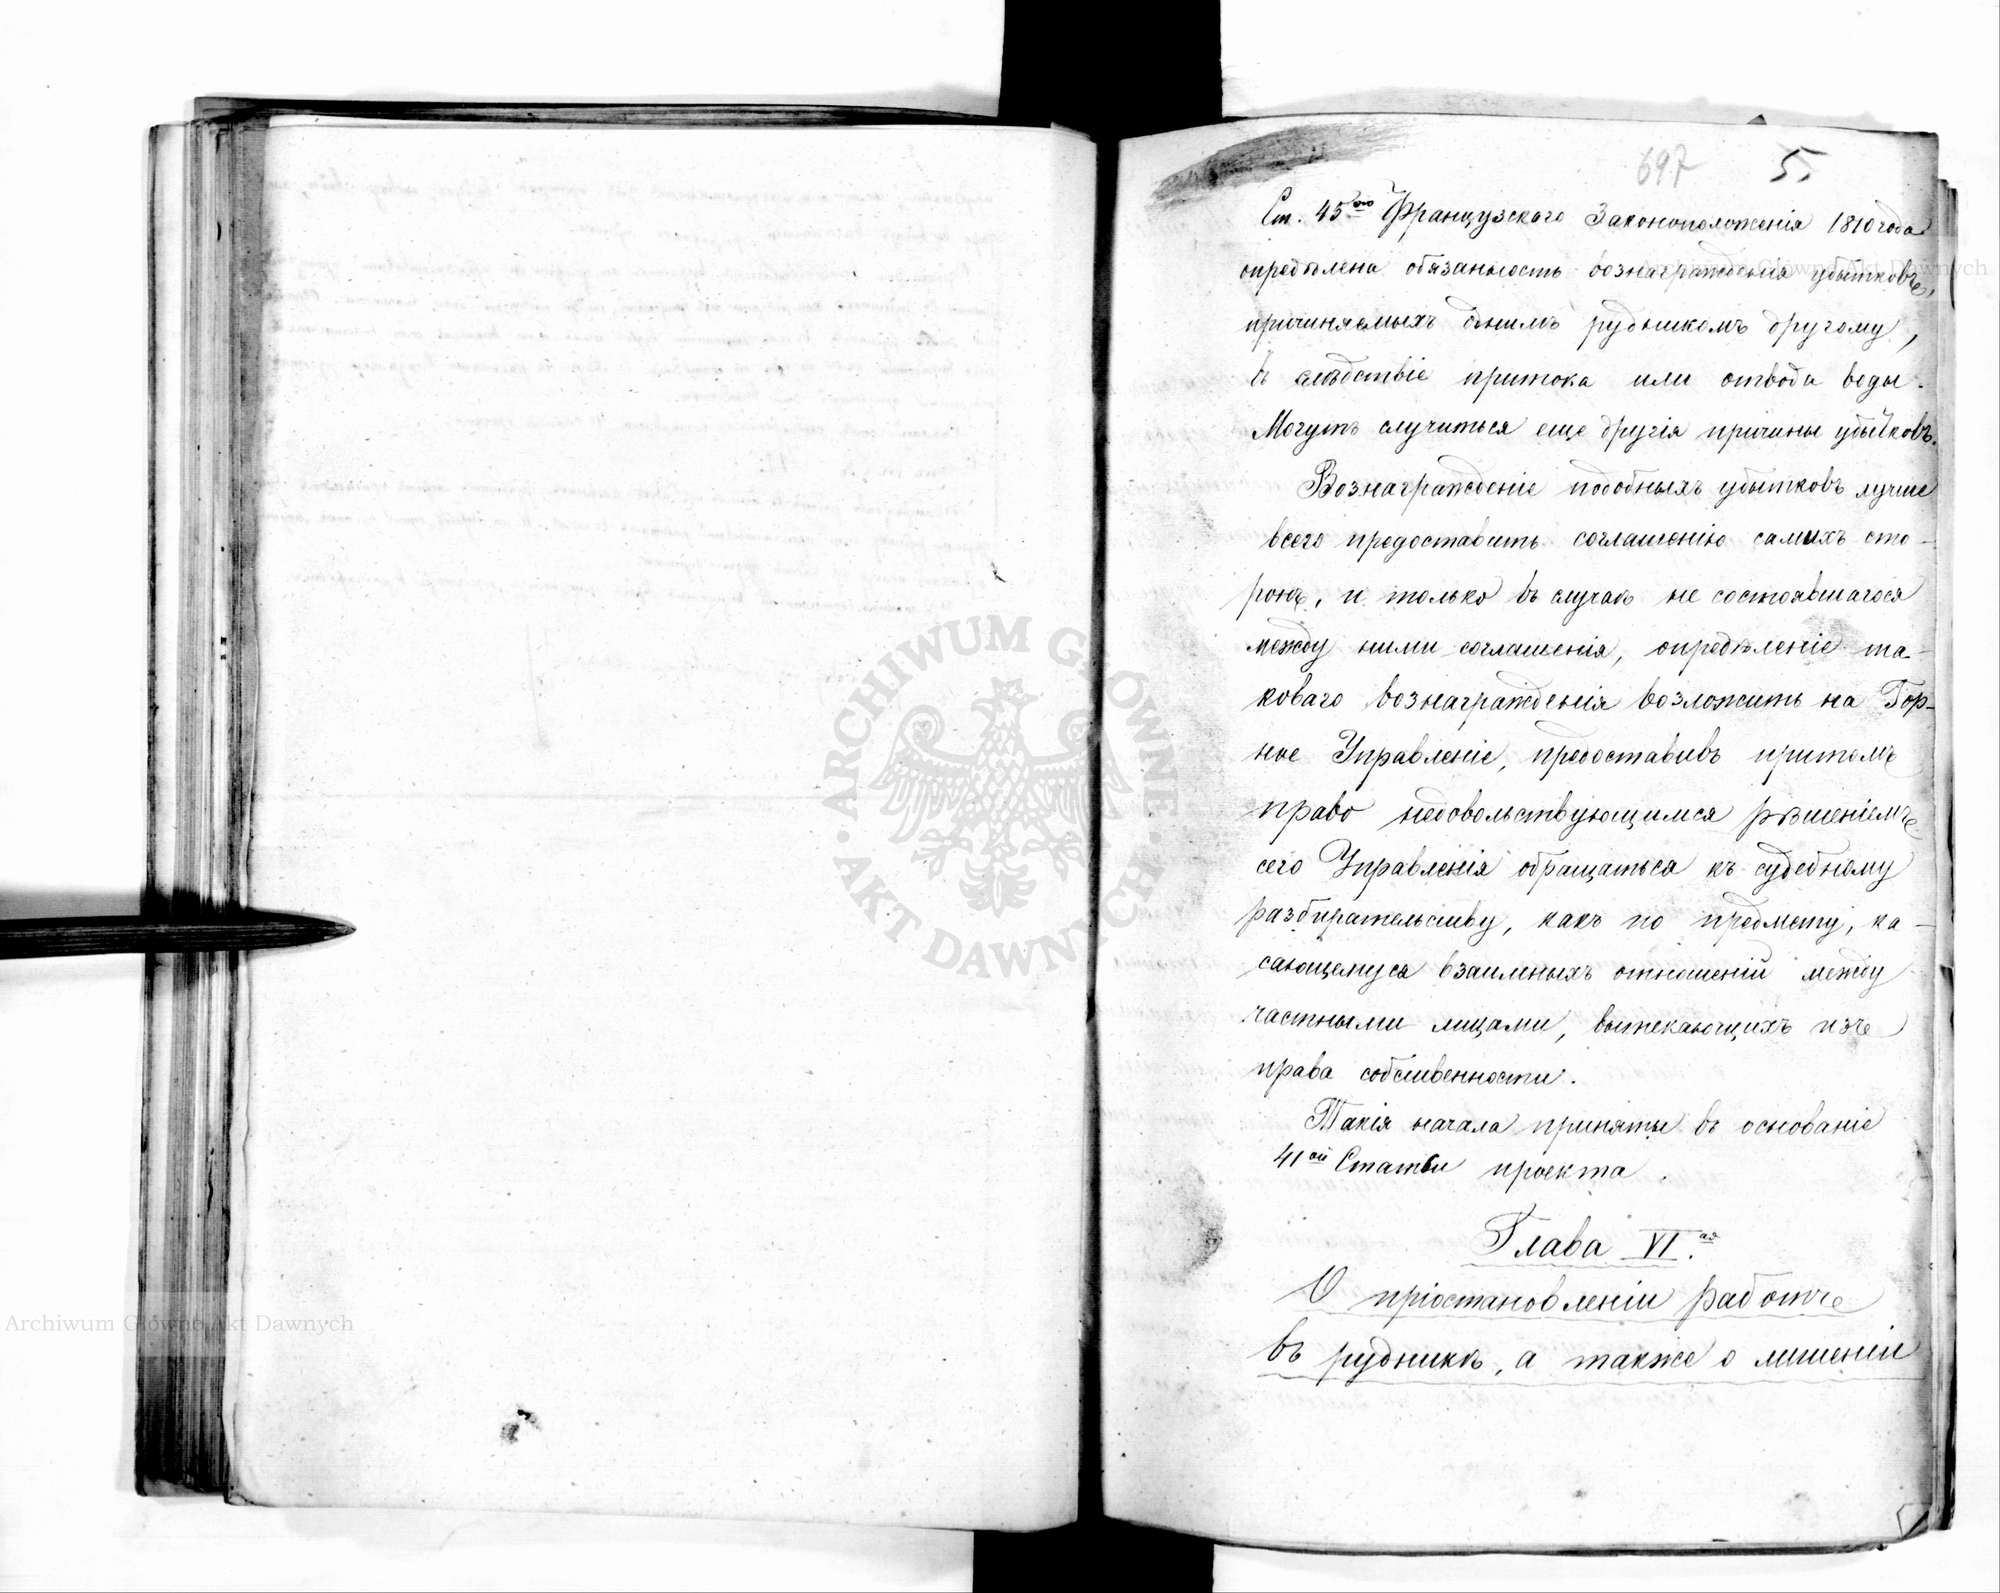 697 5.
Ст. 45ою Французскаго Законоположенія 1810 года
опредѣлена обязанность вознагражденія убытковъ,
причиняемыхъ однимъ рудникомъ другому,
въ слѣдствіе притока или отвода воды.
Могутъ случиться еще другія причины убытковъ.
Вознагражденіе подобныхъ убытковъ лучше
всего предоставить соглашенію самихъ сто-
ронъ, и только въ случаѣ не состоявшагося
между ними соглашенія, опредѣленіе та-
коваго вознагражденія возложить на Гор-
ное Управленіе, предоставивъ притомъ
право недовольствующимся рѣшеніемъ
сего Управленія обращаться къ судебному
разбирательству, какъ по предмету, ка-
сающемуся взаимныхъ отношеній между
частными лицами, вытекающихъ изъ
права собственности.
Такія начала приняты въ основаніе
41ой Статьи проекта.
Глава VI.ая
О пріостановленіи работъ
въ рудникѣ, а также о лишеніи
ARCHIWUM GŁÓWNE · AKT DAWNYCH ·
Archiwum Główne Akt Dawnych
Archiwum Główne Akt Dawnych